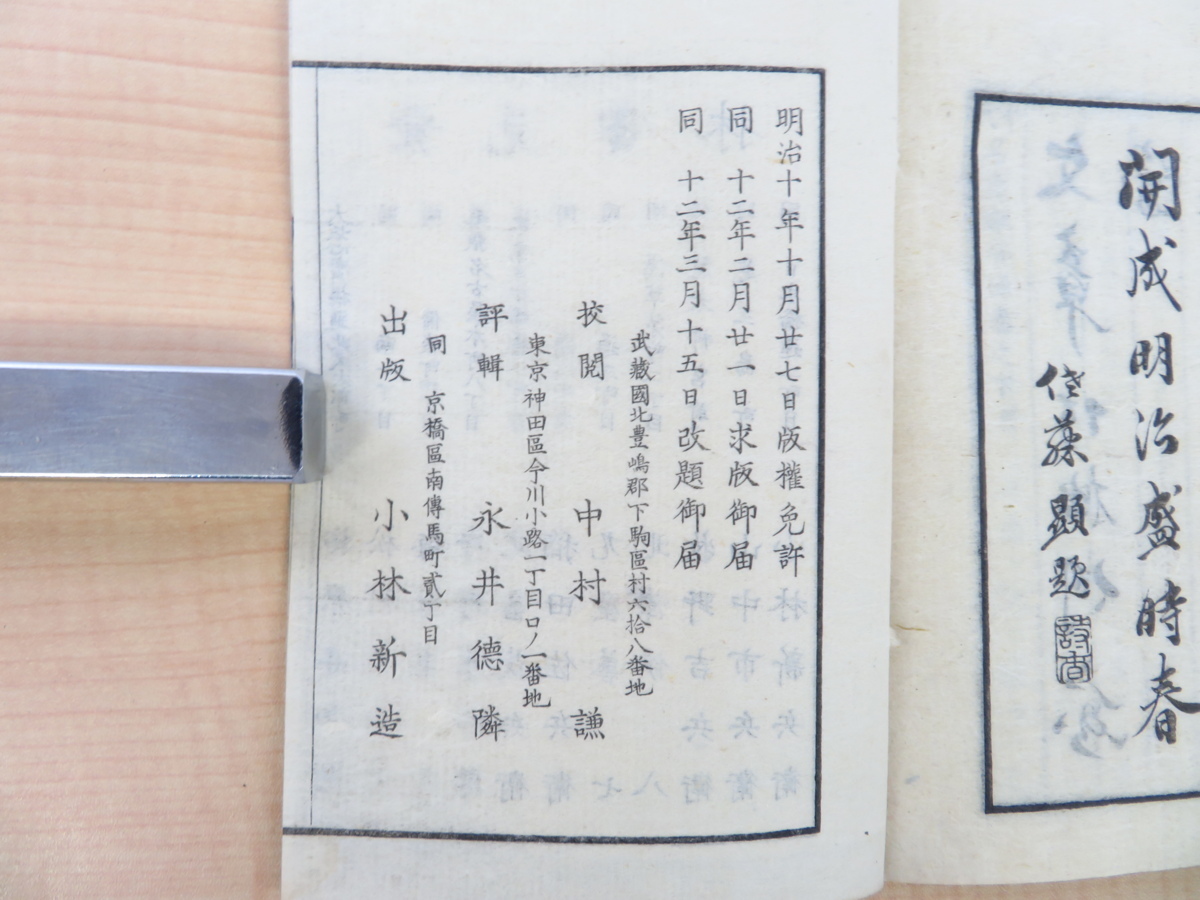 開成明治盛時春
佐藤顕題
明治十年十月廿七日版權免許
同 十二年二月廿一日求版御届
同 十二年三月十五日改題御届
武藏國北豊嶋郡下駒區村六拾八番地
挍閲 中村謙
東京神田區今川小路一丁目ロノ一番地
評輯 永井德隣
同 京橋區南傳馬町貳丁目
出版 小林新造